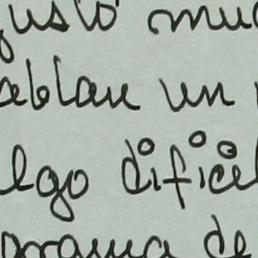 gustó mu
ablan un
lgo difícil
grama de